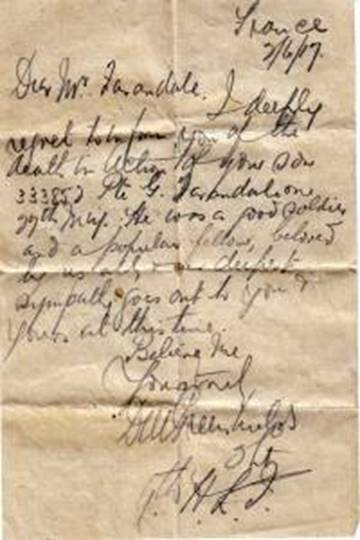 France
2/6/17.
Dear Mr. Farandale.
I deeply
regret to inform you of the
death in Action of your son
333852 Pte G. Farandale on
29th May. He was a good soldier
and a popular fellow, beloved
by us all & our deepest
sympathy goes out to you &
yours at this time.
Believe Me
Yours truly
9th H.L.I.